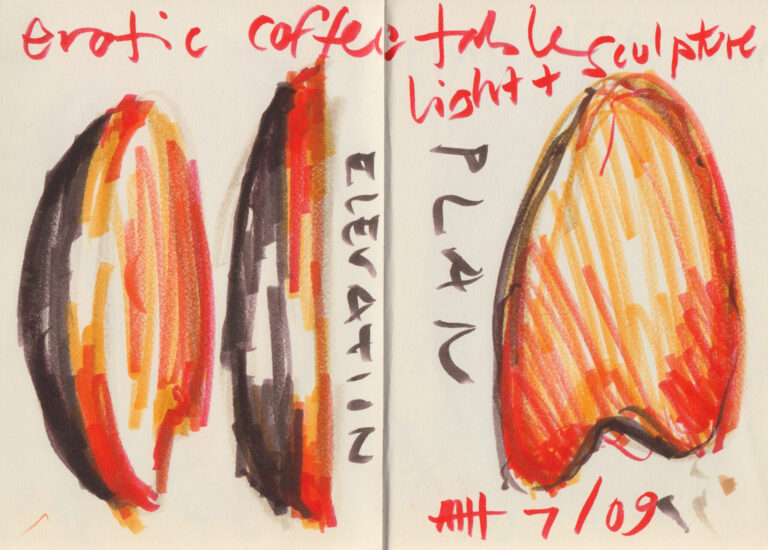 erotic coffee table sculpture
light +
ELEVATION
PLAN
7/09